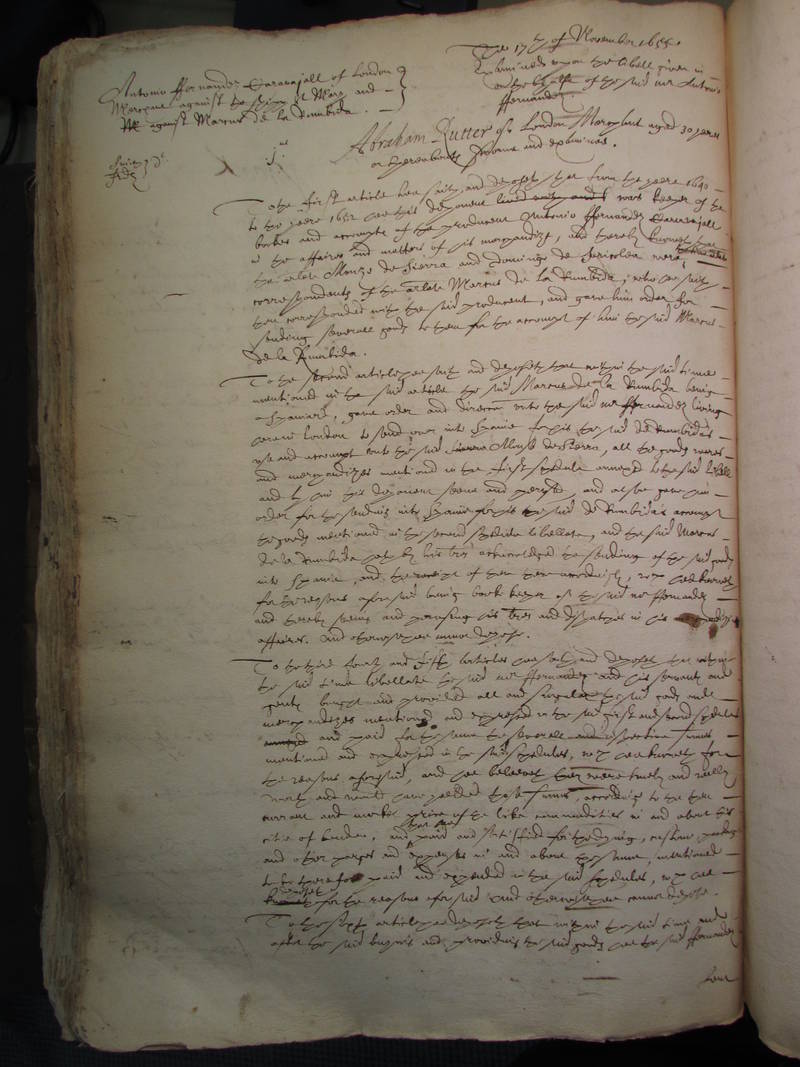 The 17th of November 1655.
Examined upon the libell given in
on the behalfe of the said mr Antonio
ffernandez
Antonio ffernandez Caravajall of London
Merchant against the shipp St Mary and
against Marcus de la Rumbida.
Abraham Rutter of London Merchant aged 30 yeeres
or thereabouts sworne and examined.
1us
To the first article hee saith and deposeth that from the yeere 1640
to the yeere 1652 hee this deponent was keeper of the
bookes and accompts of the producent Antonio ffernandez Caravajall
in the affaires and matters of his merchandize, and thereby knoweth that
the arlate Alonzo de Sierra and Domingo de were
correspondents of the arlate Marcus de la Rumbida, who hee saith
then corresponded with the said producent, and gave him order for
sending severall goods to them for the accompt of him the said Marcus
de la Rumbida.
To the second article hee saith and deposeth that within the said time
mentioned in the said article the said Marcus de la Rumbida being
a Spaniard, gave order and direction unto the said mr ffernandez living
here in London to send over into Spaine for his the said de Rumbida's
use and accompt unto the said Alonso de Sierra, all the goods wares
and merchandizes mentioned in the first schedule annexed to the said libell
and by him this deponent seene and perused, and alsoe gave him
order for the sending into Spaine for his the said de Rumbida's accompt
the goods mentioned in the second schedule libellate, and the said Marcus
de la Rumbida hath by his lres acknowledged the sending of the said goods
into Spaine, and the receipt of them there accordingly, which hee knoweth
for the reasons aforesaid being booke keeper of the said mr ffernandez
and thereby seeing and perusing his lres and dispatches in his
affaires. And otherwise hee cannot depose.
To the third fourth and fifth articles hee saith and deposeth that within
the said time libellate the said mr ffernandez and his servants and
bought and provided all and singular the said goods and
merchandizes mentioned and expressed in the said first and second schedules
and paid for the same the severall and respective summes
mentioned and expressed in the said schedules, which hee knoweth for
the reasons aforesaid, and hee beleeveth they were truely and really
worth and would have yeelded those summes, according to the then
currant and market price of the like commodities in and about this
citie of London, and that hee paid and satisfied for the dying, custome, package
and other charges and expenses in and about the same, mentioned
to be therefore paid and expended in the said schedules, which hee
for the reasons aforesaid And otherwise hee cannot depose.
To the sixth article hee deposeth that within the said time and
after the said buying and providing the said goods hee the said ffernandez